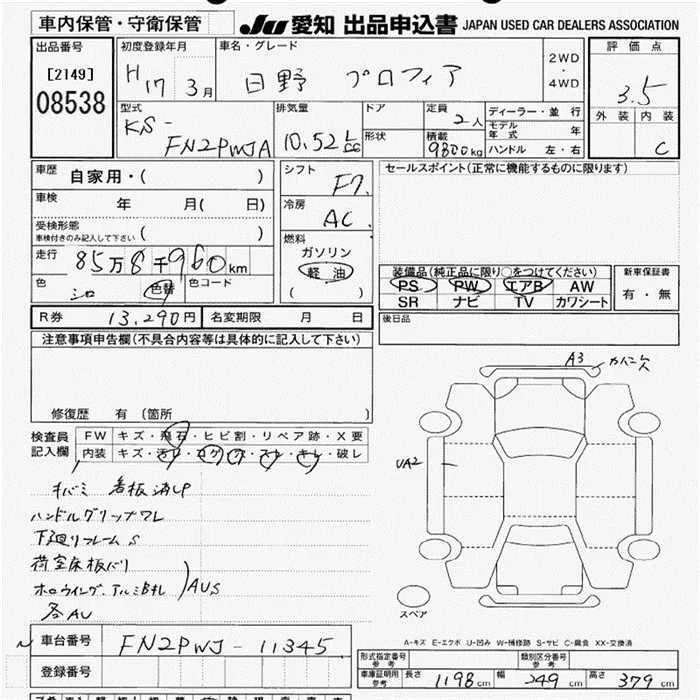 車内保管・守衛保管 JU 愛知 出品申込書 JAPAN USED CAR DEALERS ASSOCIATION
出品番号 初度登録年月 車名・グレード 2WD・4WD 評価点
[2149] H17 3月 日野 プロフィア 3.5
08538 型式 排気量 ドア 定員 2人 ディーラー・並行 外装 内装
KS- 形状 積載 モデル年式 年
FN2PWJA 10.52 L cc 9800kg ハンドル 左・右 C
車歴 自家用・( ) シフト F7 セールスポイント(正常に機能するものに限ります)
車検 年 月( 日) 冷房 AC
受検形態 ( ) 燃料
車検付きのみ記入して下さい ガソリン
走行 85万8千960km 軽油 装備品(純正品に限り○をつけてください) 新車保証書
色 シロ 色替 色コード ( ) PS PW エアB AW 有・無
SR ナビ TV カワシート
R券 13,290円 名変期限 月 日 後日品
注意事項申告欄(不具合内容等は具体的に記入して下さい)
A3
修復歴 有 (箇所 )
検査員 FW キズ・飛石・ヒビ割・リペア跡・X要
記入欄 内装 キズ・汚レ・コゲ・穴・スレ・キレ・破レ
UA2
キバミ 看板消し
ハンドルグリップワレ
下廻りフレームS
荷室床板バリ
ホロウイング.アルミB札 AUS
各AU
スペア
A-キズ E-エクボ U-凹み W-補修跡 S-サビ C-腐食 XX-交換済
車台番号 FN2PWJ-11345
登録番号
形式指定番号 参考 類別区分番号 参考
車庫証明用 参考 長さ 1198cm 幅 249cm 高さ 379cm